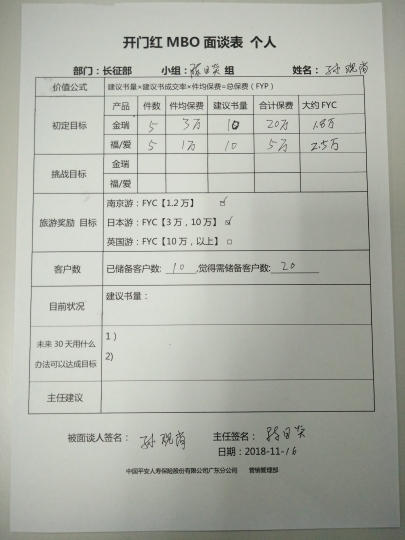 开门红 MBO 面谈表 个人
部门：长征部 小组： 组 姓名：孙
价值公式 建议书量×建议书成交率×件均保费=总保费（FYP）
产品 件数 件均保费 建议书量 合计保费 大约 FYC
初定目标
金瑞 5 3万 10 20万 1.8万
福/爱 5 1万 10 5万 2.5万
挑战目标
金瑞
福/爱
旅游奖励 目标
南京游：FYC【1.2 万】 ☑
日本游：FYC【3 万，10 万】 ☑
英国游：FYC【10 万，以上】 □
客户数 已储备客户数: 10 ,觉得需储备客户数: 20
目前状况 建议书量：
未来 30 天用什么
办法可以达成目标
1）
2)
主任建议
被面谈人签名：孙 主任签名：
日期：2018-11-16
中国平安人寿保险股份有限公司广东分公司 营销管理部